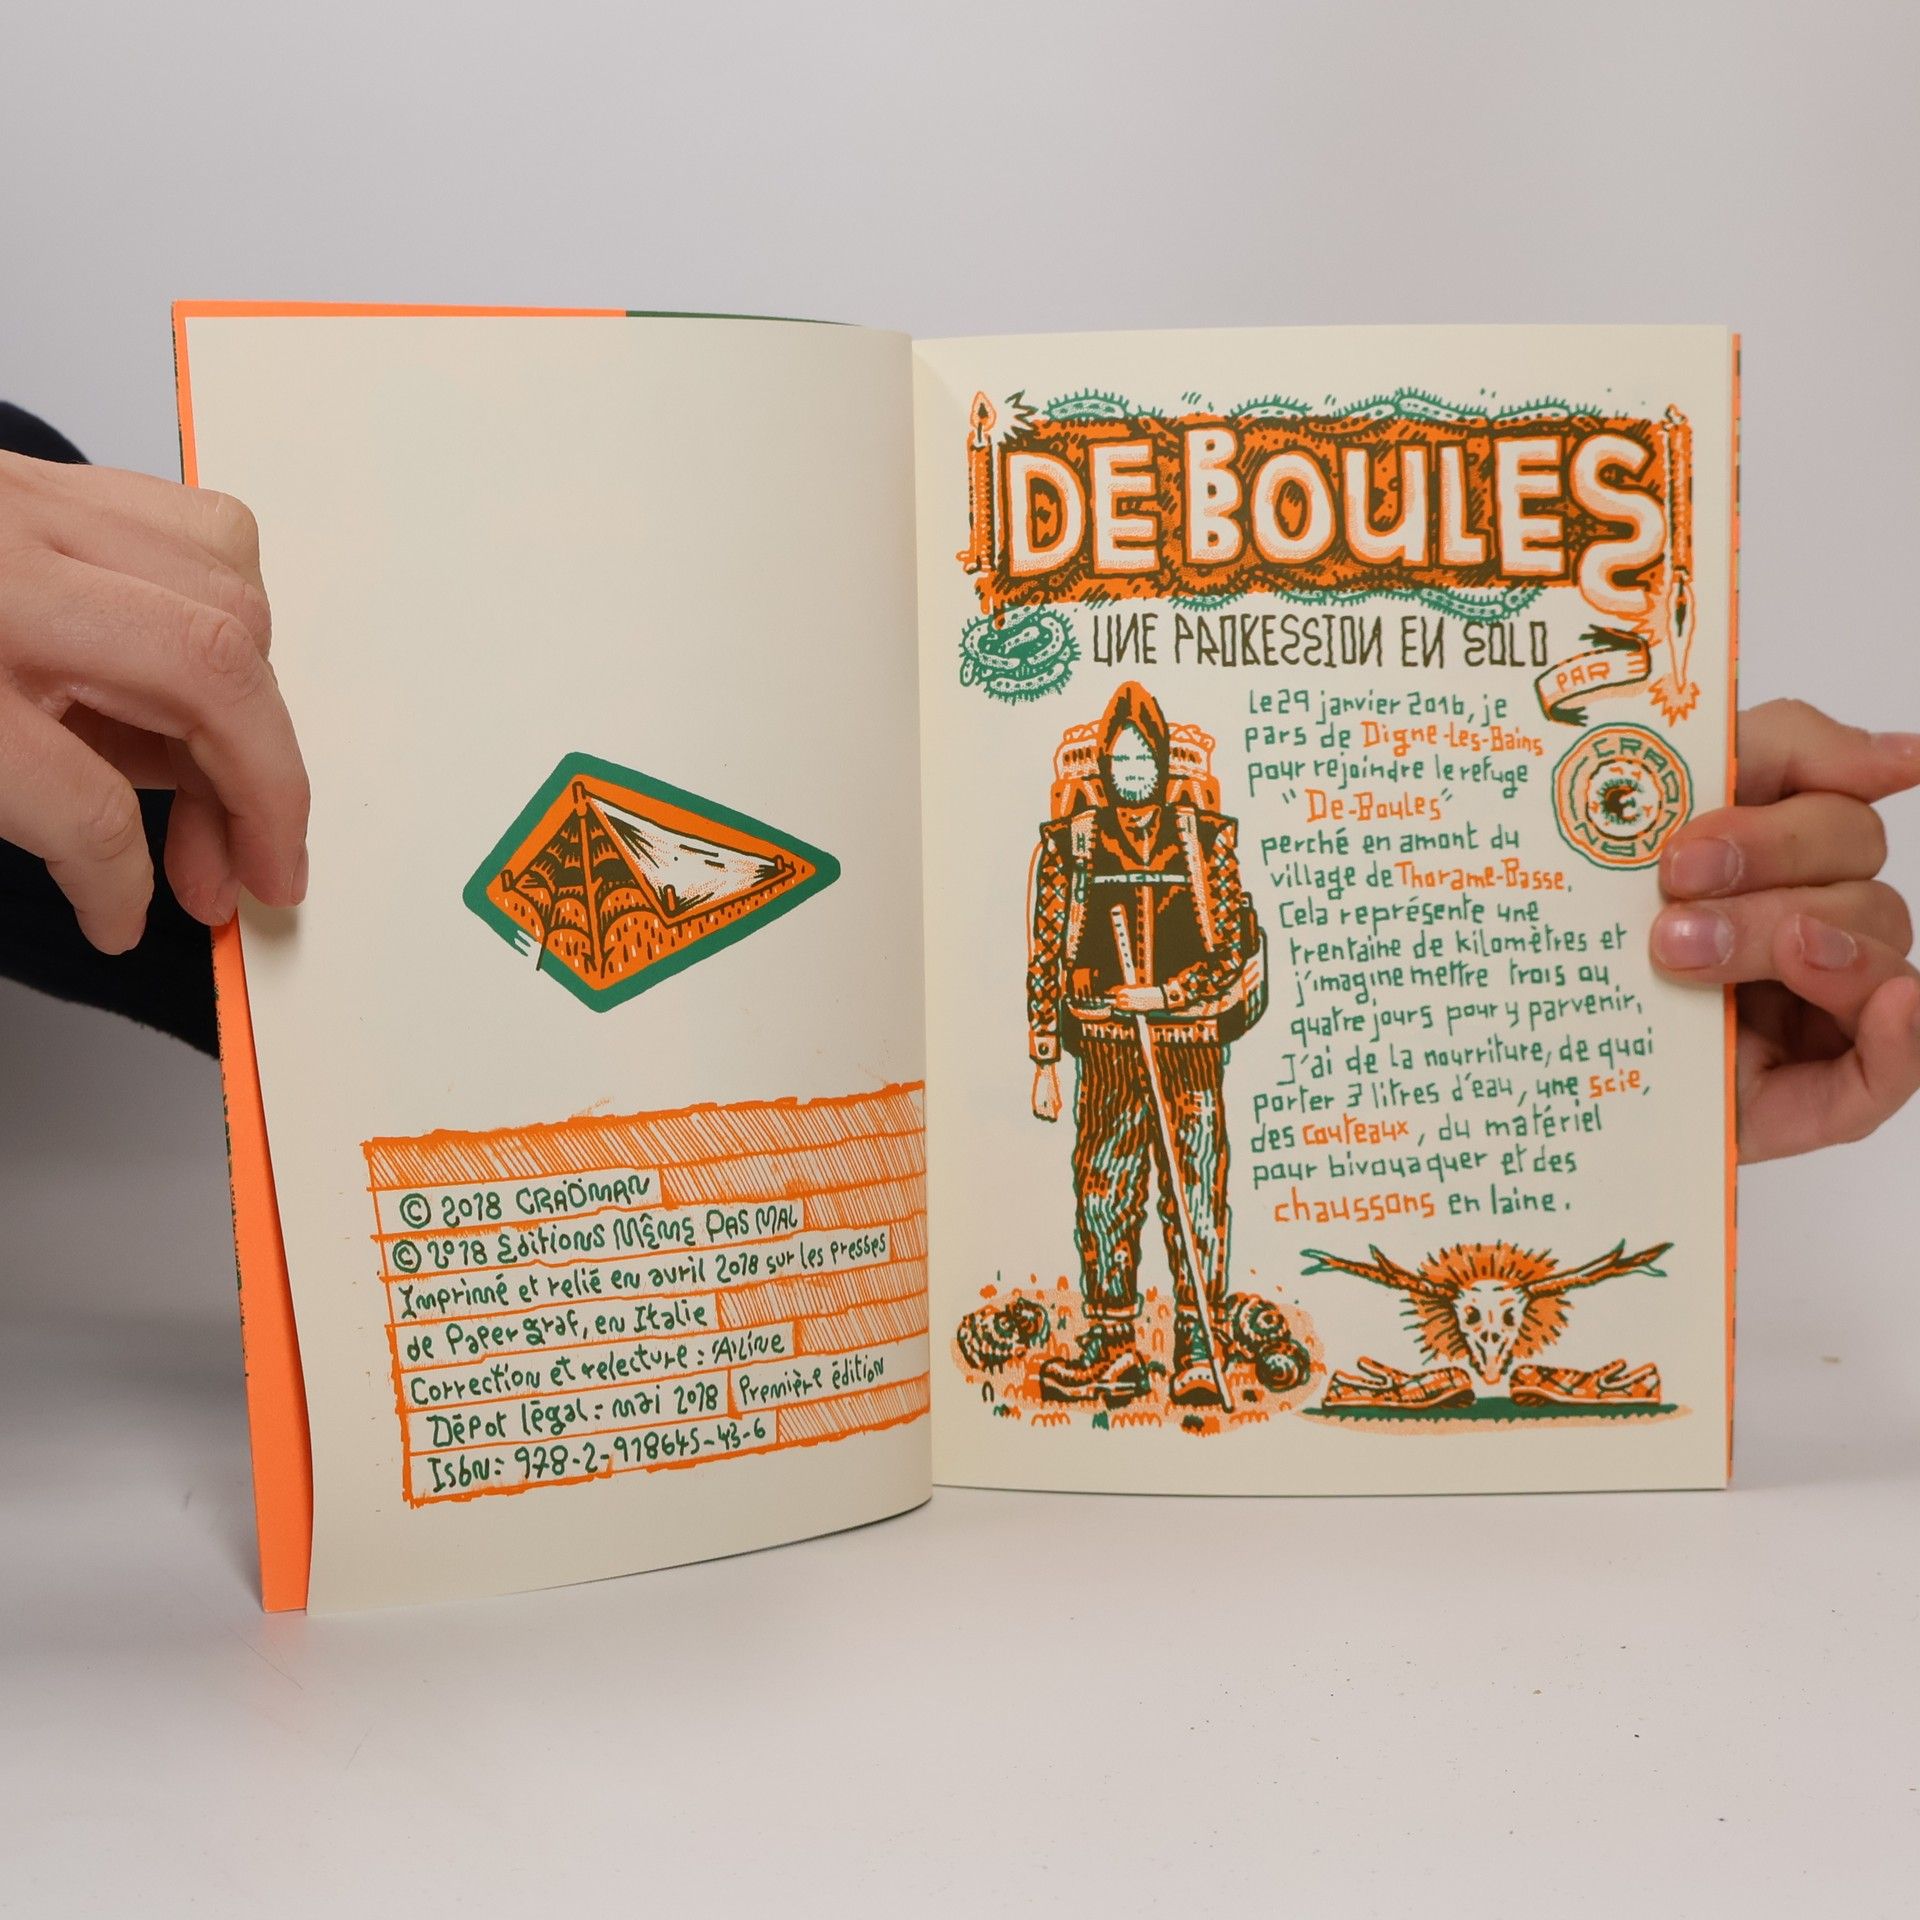 © 2018 CRAOMAN
© 2018 Editions Même Pas Mal
Imprimé et relié en avril 2018 sur les presses
de Papergraf, en Italie
Correction et relecture : Aline
Dépot légal : mai 2018 Première édition
Isbn : 978-2-918645-43-6
DE BOULES
UNE PROGRESSION EN SOLO
PAR
CRAOMAN
Le 29 janvier 2016, je
pars de Digne-Les-Bains
pour rejoindre le refuge
"De-Boules"
perché en amont du
village de Thorame-Basse.
Cela représente une
trentaine de kilomètres et
j'imagine mettre trois ou
quatre jours pour y parvenir.
J'ai de la nourriture, de quoi
porter 3 litres d'eau, une scie,
des couteaux, du matériel
pour bivouaquer et des
chaussons en laine.